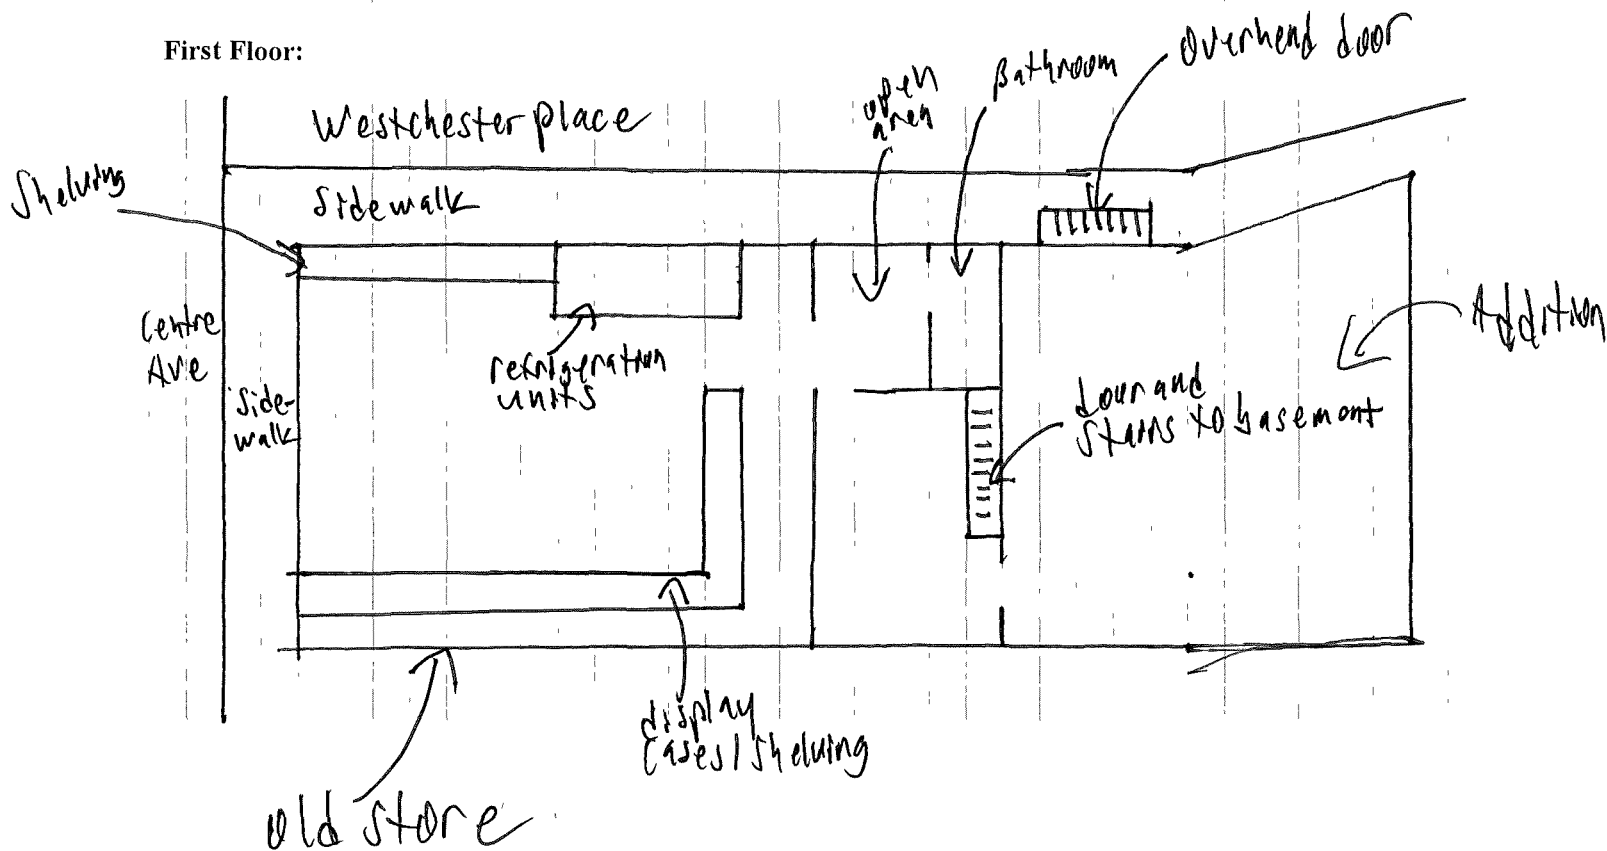 First Floor:
Westchester place
open
area
Bathroom
overhead door
Shelving
Sidewalk
Centre
Ave
Side-
walk
refrigeration
units
Addition
door and
stairs to basement
display
cases/shelving
old store